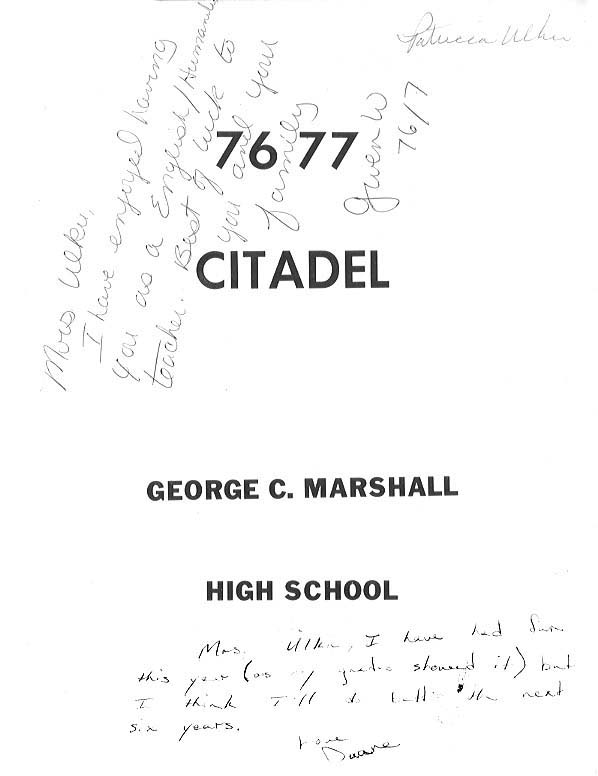 Patricia Ulku
Mrs Ulku,
I have enjoyed having
you as a English/Humanities
teacher. Best of luck to
you and you
family
Gwen W
76/7
76 77
CITADEL
GEORGE C. MARSHALL
HIGH SCHOOL
Mrs. Ulku, I have had fun
this year (as my grades showed it) but
I think I'll do better the next
six years.
Love
Duane